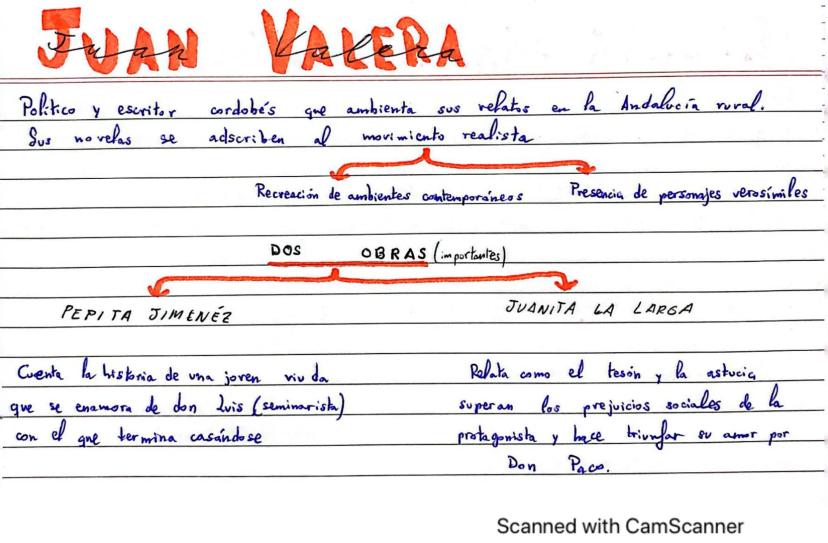 JUAN VALERA
Político y escritor cordobés que ambienta sus relatos en la Andalucía rural.
Sus novelas se adscriben al movimiento realista
Recreación de ambientes contemporáneos
Presencia de personajes verosímiles
DOS OBRAS (importantes)
PEPITA JIMENÉZ
JUANITA LA LARGA
Cuenta la historia de una joven viuda
que se enamora de don Luis (seminarista)
con el que termina casándose
Relata como el tesón y la astucia
superan los prejuicios sociales de la
protagonista y hace triunfar su amor por
Don Paco.
Scanned with CamScanner